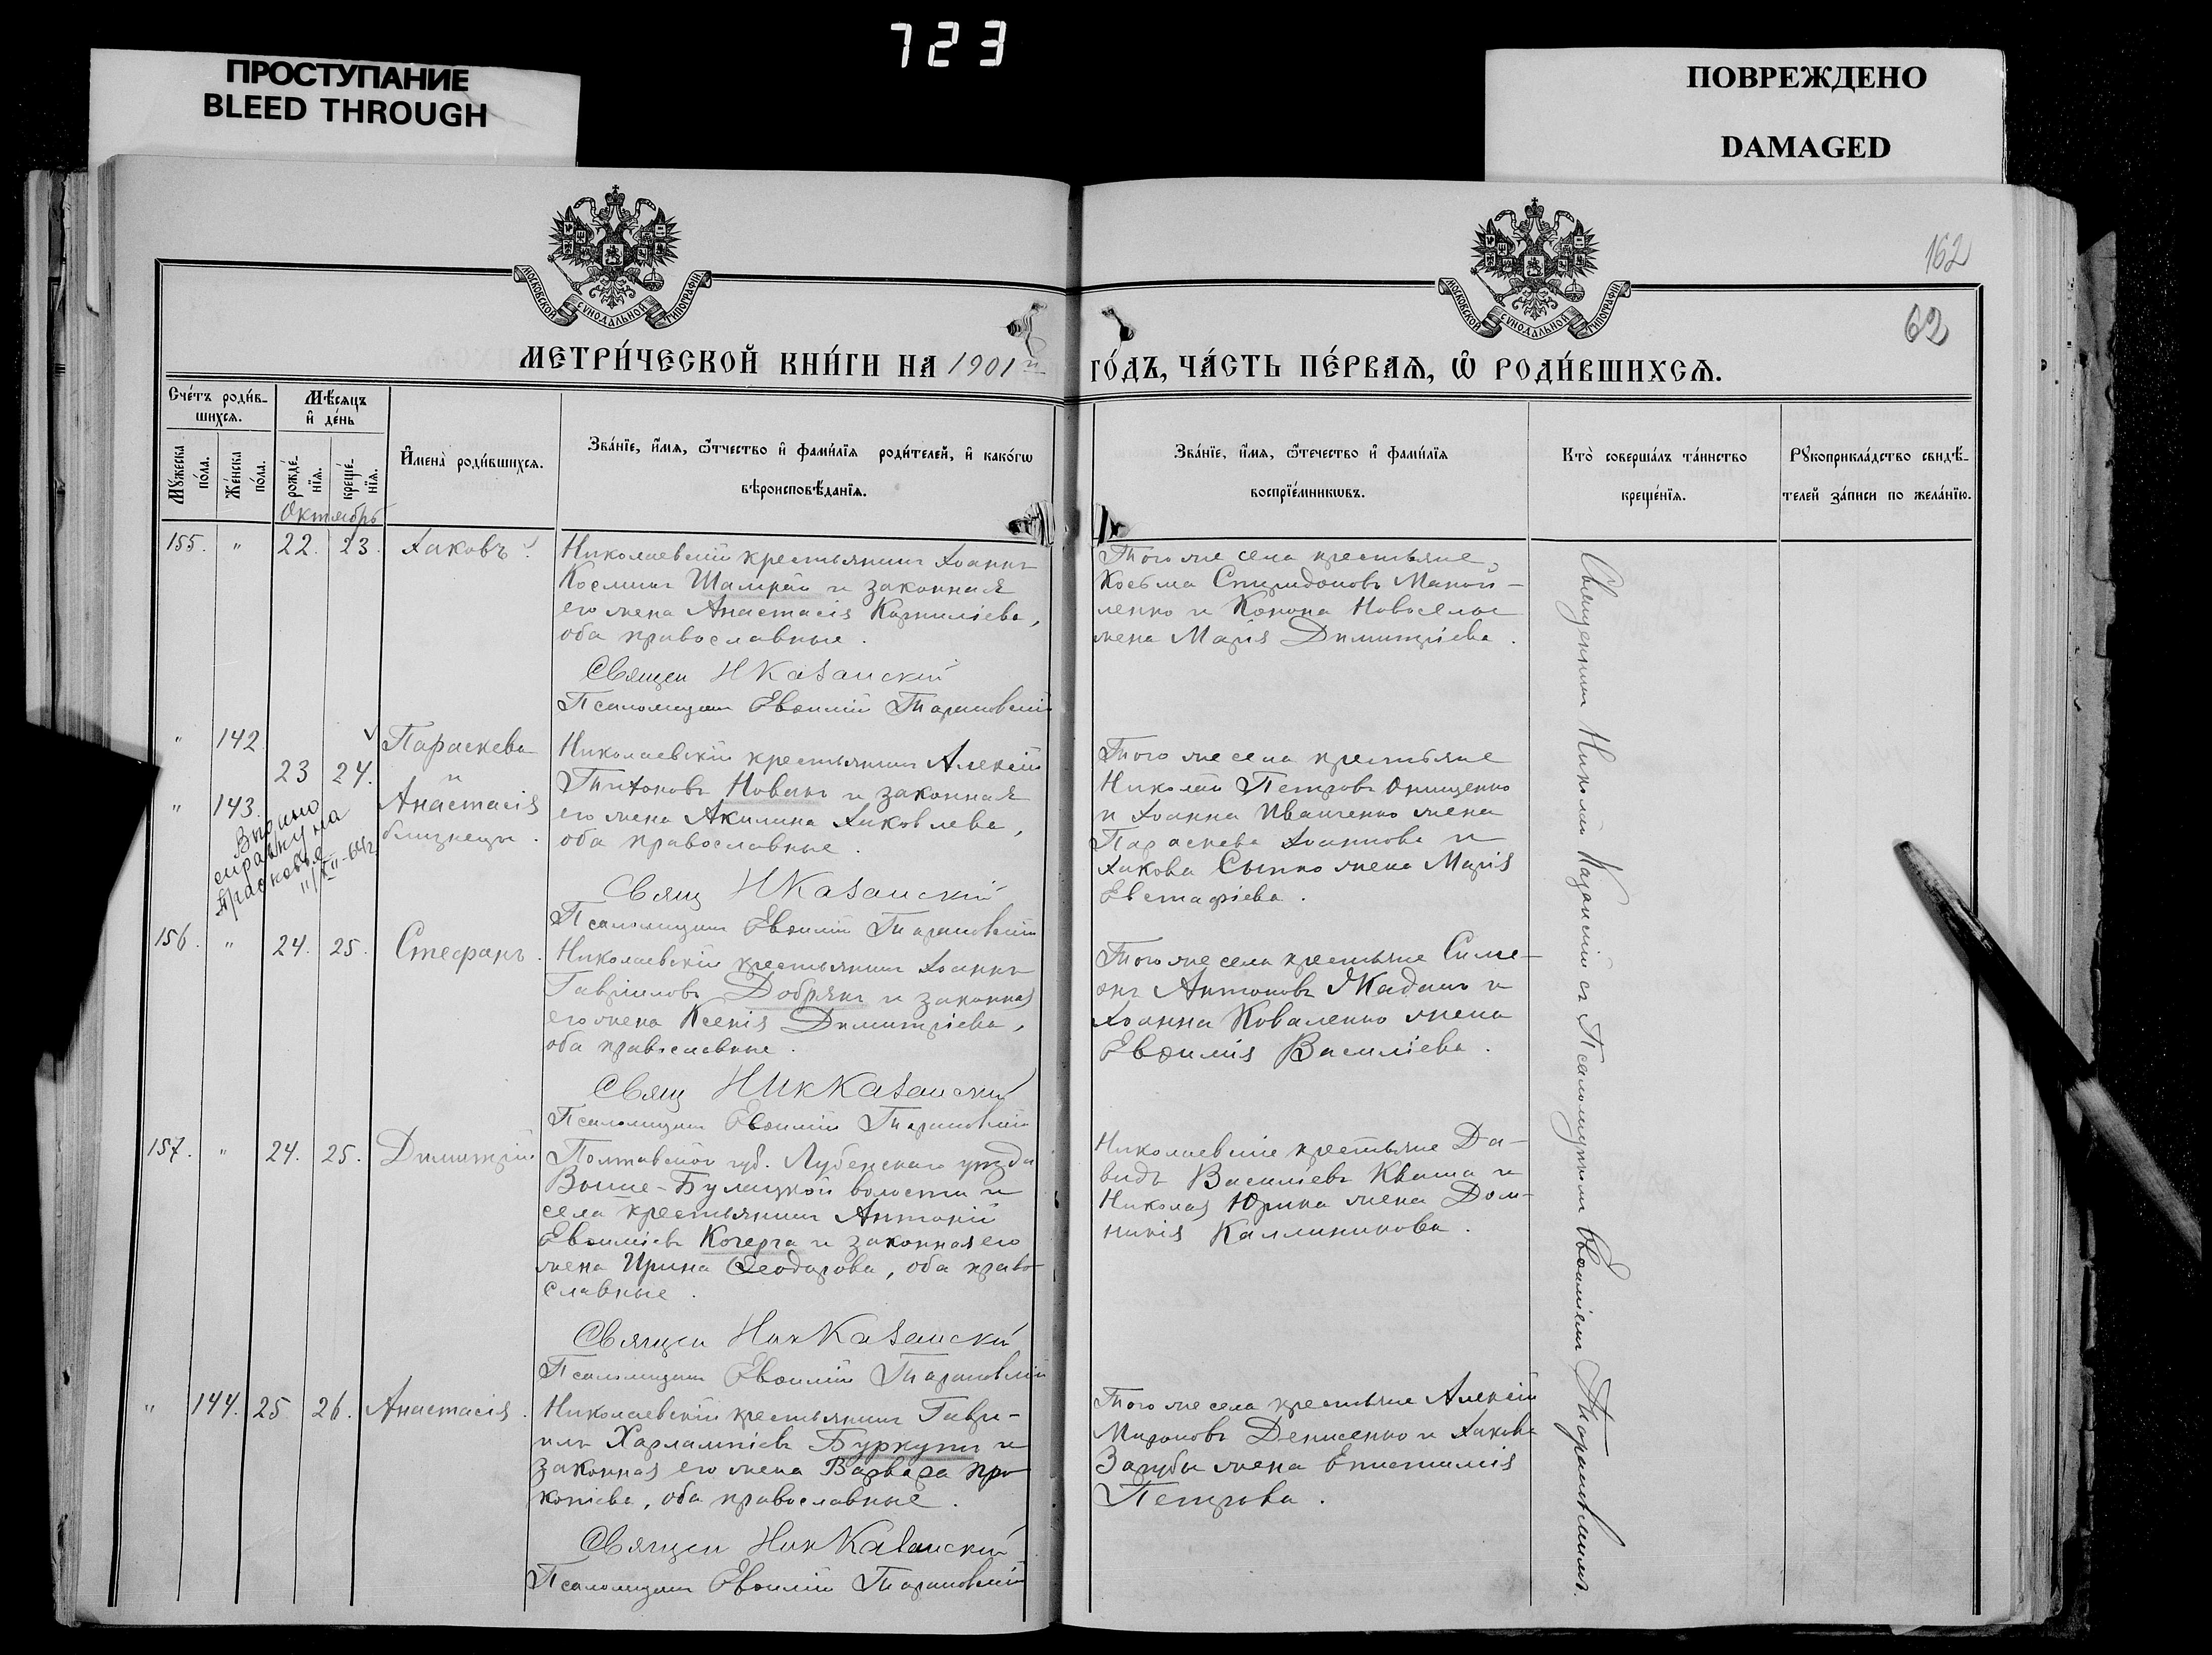 723
ПРОСТУПАНИЕ
BLEED THROUGH
ПОВРЕЖДЕНО
DAMAGED
МОСКОВСКОЙ СѴНОДАЛЬНОЙ ТИПОГРАФІИ
МОСКОВСКОЙ СѴНОДАЛЬНОЙ ТИПОГРАФІИ
162
62
МЕТРИ́ЧЕСКОЙ КНИ́ГИ НА 1901й
ГО́ДЪ, ЧА́СТЬ ПЕ́РВАѦ, Ѿ РОДИ́ВШИХСѦ.
Сче́тъ роди́в-
шихсѧ.
Мѣ́сяцъ
и҆ де́нь
Мꙋ́жеска по́ла.
Же́нска по́ла.
рожде́-нїѧ.
креще́-нїѧ.
И҆мена̀ роди́вшихсѧ.
Зва́нїе, и҆́мѧ, ѻ҆́тчество и҆ фами́лїѧ роди́телей, и҆ како́гѡ
вѣроисповѣ́данїѧ.
Зва́нїе, и҆́мѧ, ѻ҆́течество и҆ фами́лїѧ
воспрїе́мникѡвъ.
Кто̀ соверша́лъ та́инство
креще́нїѧ.
Рꙋкоприкла́дство свидѣ́-
телей за́писи по жела́нїю.
Октябрь
155. " 22. 23. Іаковъ.
Николаевскій крестьянинъ Іоаннъ
Косминъ Шамрай и законная
его жена Анастасія Корниліева,
оба православные.
Священ Н Казанскій
Псаломщикъ Евѳимій Тарановскій
Того же села крестьяне,
Косьма Спиридоновъ Маной-
ленко и Конона Новосела
жена Марія Димитріева.
" 142
23 24. Параскева
и
" 143. Анастасія
близнецы.
Выдано
справку на
Прасковья
11/XII-64г
Николаевскій крестьянинъ Алексій
Тихоновъ Новакъ и законная
его жена Акилина Іаковлева,
оба православные.
Свящ Н Казанскій
Псаломщикъ Евѳимій Тарановскій
Того же села крестьяне
Николай Петровъ Онищенко
и Іоанна Иванченко жена
Параскева Іоаннова и
Іакова Сынко жена Марія
Евстафіева.
156. " 24. 25. Стефанъ.
Николаевскій крестьянинъ Іоаннъ
Гавріиловъ Добрякъ и законная
его жена Ксенія Димитріева,
оба православные.
Свящ Ник Казанскій
Псаломщикъ Евѳимій Тарановскій
Того же села крестьяне Симе-
онъ Антоновъ Жаданъ и
Іоанна Коваленко жена
Евѳимія Василіева.
157. " 24. 25. Димитрій
Полтавской губ. Лубенскаго уѣзда
Выше-Булацкой волости и
села крестьянинъ Антоній
Евѳиміевъ Кочерга и законная его
жена Ирина Ѳеодорова, оба право-
славные.
Священ Ник Казанскій
Псаломщикъ Евѳимій Тарановскій
Николаевскіе крестьяне Да-
видъ Василіевъ Кваша и
Николая Юрина жена Дом-
никія Каллиникова.
" 144. 25 26. Анастасія.
Николаевскій крестьянинъ Гаври-
илъ Харлампіевъ Буркутъ и
законная его жена Варвара Про-
копіева, оба православные.
Священ Ник Казанскій
Псаломщикъ Евѳимій Тарановскій
Того же села крестьяне Алексій
Мироновъ Денисенко и Іакова
Загубы жена Епистимія
Петрова.
Священникъ Николай Казанскій съ Псаломщикомъ Евѳиміемъ Тарановскимъ.